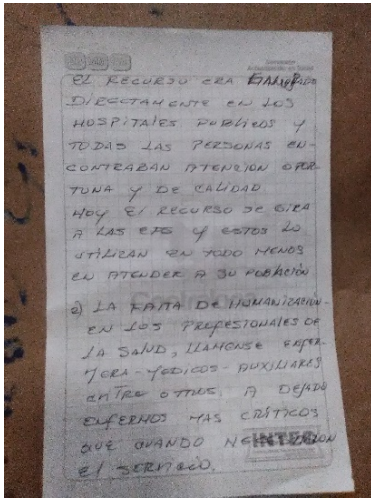 EL RECURSO ERA
DIRECTAMENTE EN LOS
HOSPITALES PUBLICOS Y
TODAS LAS PERSONAS EN-
CONTRABAN ATENCION OPOR-
TUNA Y DE CALIDAD
HOY EL RECURSO SE GIRA
A LAS EPS Y ESTOS LO
UTILIZAN EN TODO MENOS
EN ATENDER A SU POBLACIÓN
2) LA FALTA DE HUMANIZACIÓN-
EN LOS PROFESIONALES DE
LA SALUD, LLAMENSE ENFER-
MERA-MEDICOS-AUXILIARES
ENTRE OTROS, A DEJADO
ENFERMOS MAS CRÍTICOS
QUE CUANDO
EL SERVICIO.